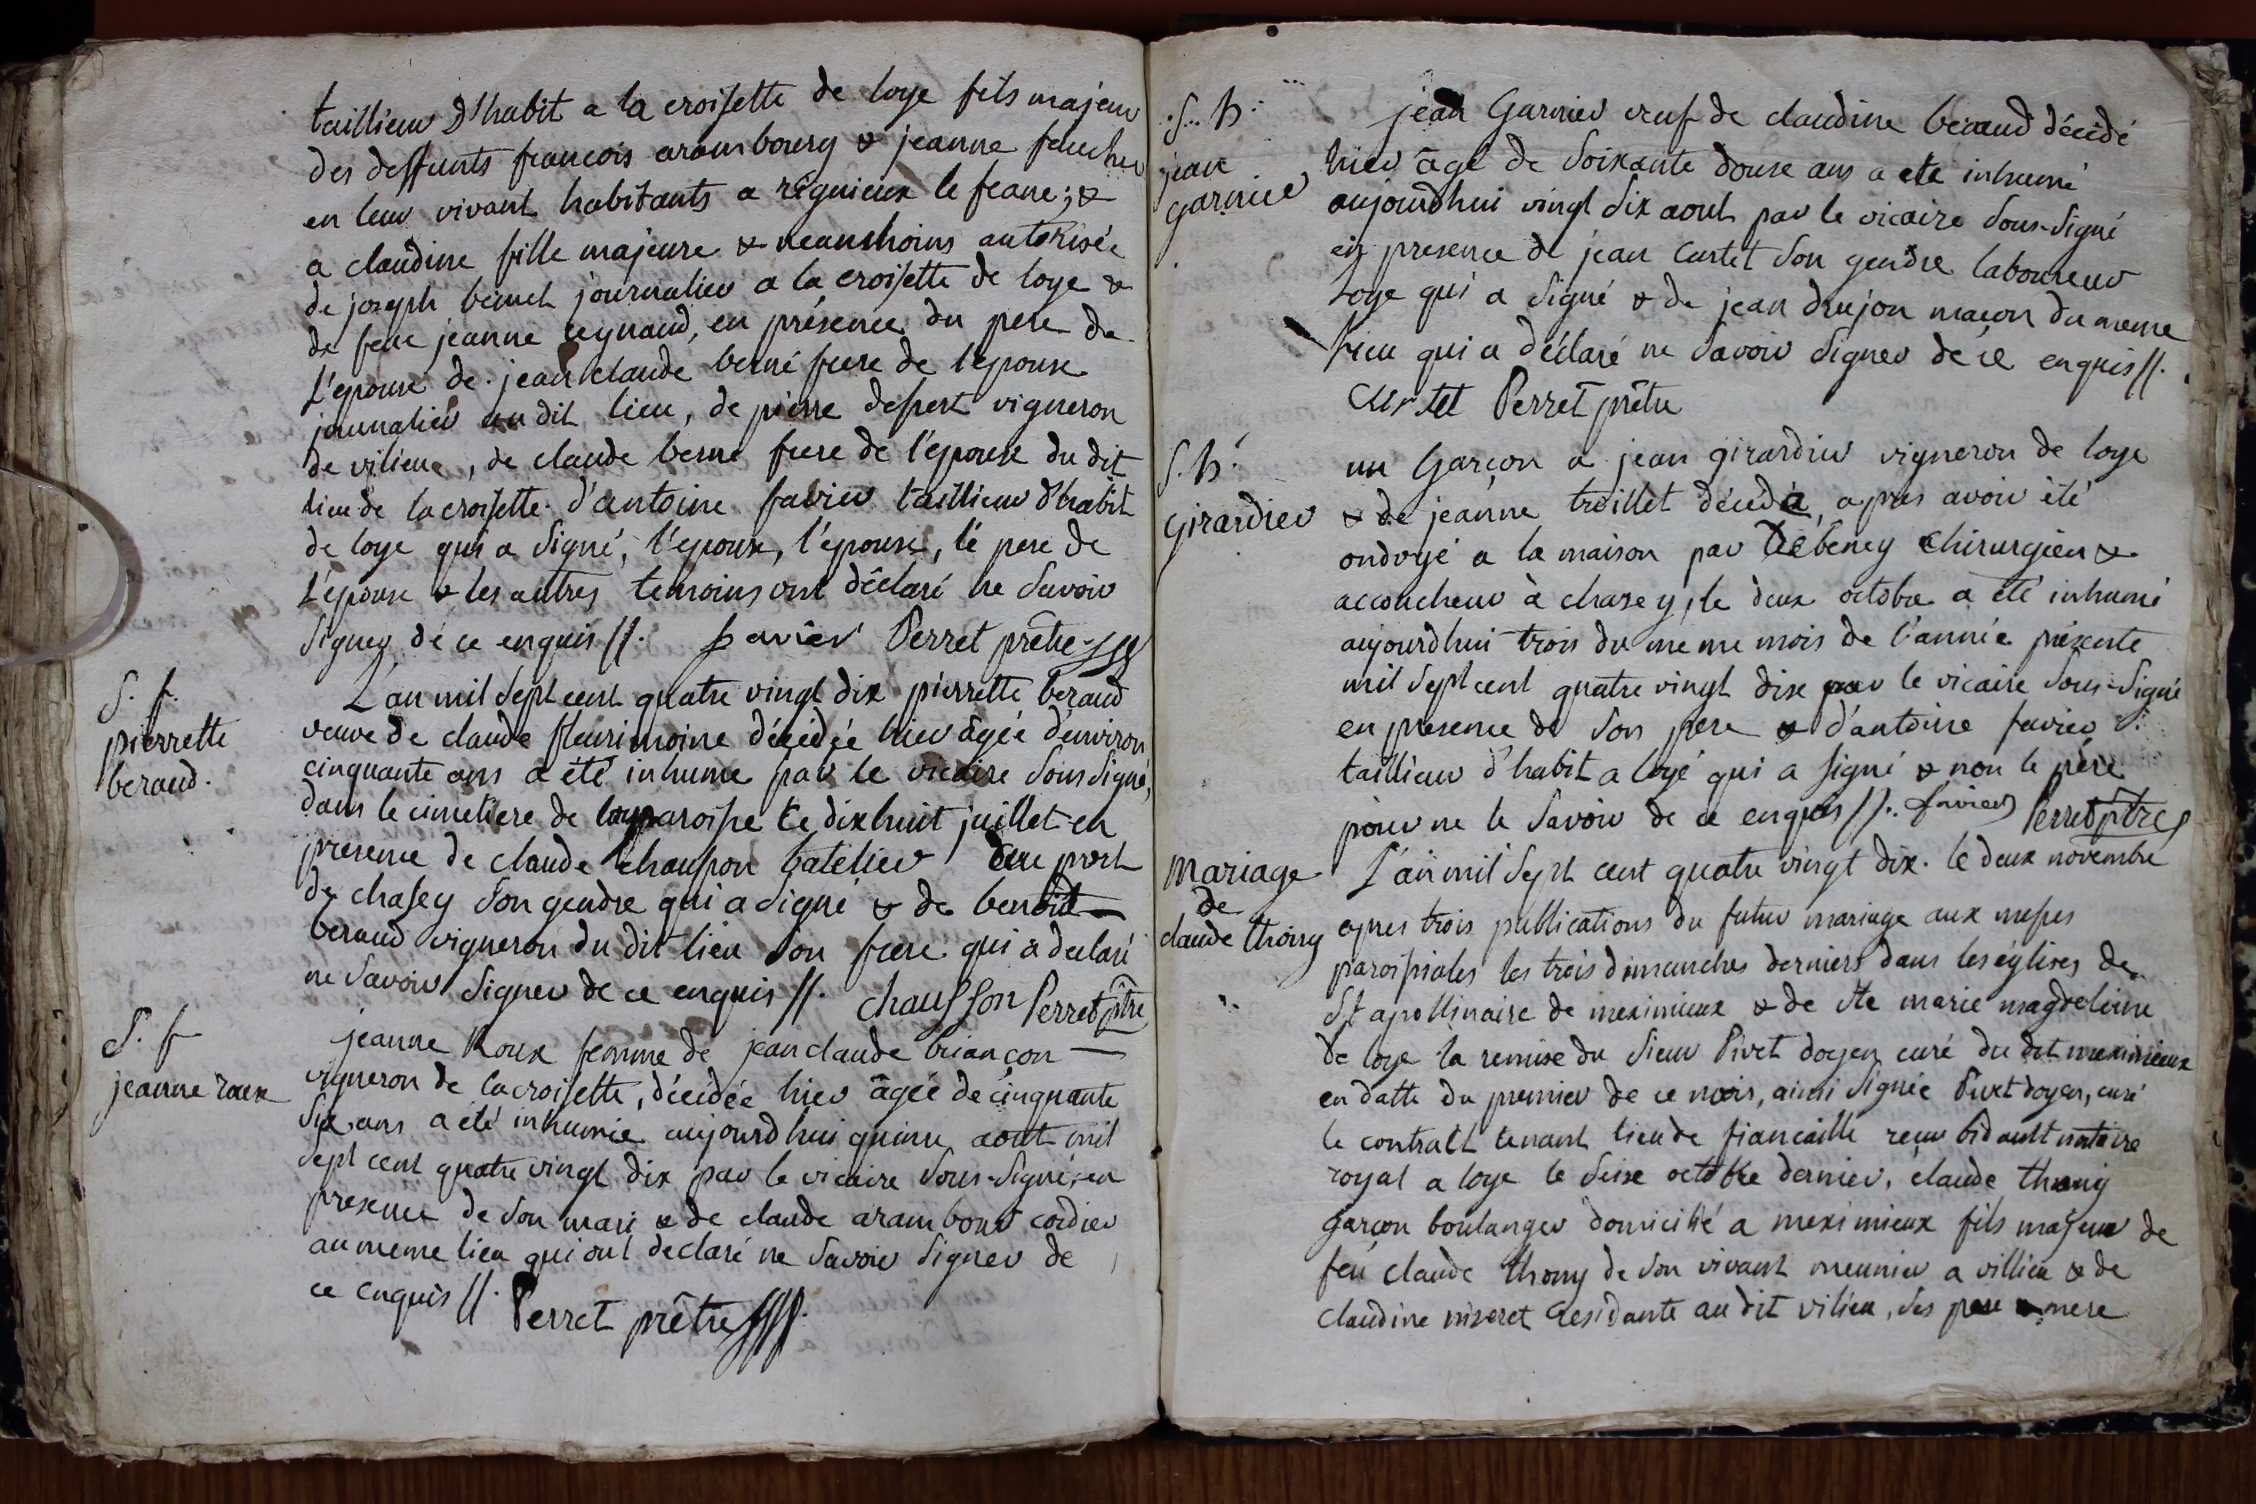 taillieur d'habit a la croisette de loye fils majeur
des deffunts francois arambourg & jeanne faucher
en leur vivant habitants a rignieux le franc; &
a claudine fille majeure & neanmoins autorisée
de joseph journalier a la croisette de loye &
de feue jeanne reynaud, en présence du pere de
L'epouse de jean claude berné frere de l'epouse
journalier au dit lieu, de pierre despert vigneron
de vilieu, de claude berne frere de l'épouse du dit
lieu de la croisette. d'antoine favier taillieur d'habit
de loye qui a signé, l'epoux, l'épouse, le pere de
L'épouse & les autres temoins ont déclaré ne savoir
signer de ce enquis //. favier Perret prêtre
S. f.
pierrette
beraud.
L'an mil sept cent quatre vingt dix pierrette beraud
veuve de claude fleurimoine décédée hier âgée d'environ
cinquante ans a été inhume par le vicaire sous signé,
dans le cimetiere de la paroisse le dix huit juillet en
presence de claude chausson batelier au port
de chasey son gendre qui a signé & de benoit
beraud vigneron du dit lieu son frere qui a declaré
ne savoir signer de ce enquis //. chausson Perret ptre
S. f
jeanne roux
jeanne Roux femme de jean claude briançon
vigneron de la croisette, décédée hier âgée de cinquante
six ans a été inhumée aujourd'hui quinze aout mil
sept cent quatre vingt dix par le vicaire sous-signé, en
presence de son mari & de claude arambour cordier
au meme lieu qui ont declaré ne savoir signer de
ce enquis //. Perret prêtre
S. h.
jean
garnier
jean Garnier veuf de claudine beraud décédé
hier âgé de soixante douse ans a ete inhumé
aujourdhui vingt six aout par le vicaire sous-signé
en presence de jean curtet son gendre laboureur
Loye qui a signé & de jean drujon maçon du meme
lieu qui a déclaré ne savoir signer de ce enquis //.
curtet Perret prêtre
S. h.
girardier
un Garçon a jean girardier vigneron de loye
& de jeanne troillet décédé, apres avoir été
ondoyé a la maison par Debeney chirurgien &
accoucheur à chasey, le deux octobre a été inhumé
aujourdhui trois du meme mois de l'année présente
mil sept cent quatre vingt dix par le vicaire sous-signé
en presence de son pere & d'antoine favier
taillieur d'habit a loye qui a signé & non le père
pour ne le savoir de ce enquis //. favier Perret ptre
mariage
de
claude thoing
L'an mil sept cent quatre vingt dix. le deux novembre
apres trois publications du futur mariage aux messes
paroissiales les trois dimanches derniers dans les églises de
St apollinaire de meximieux & de ste marie magdeleine
de loye la remise du sieur Pivet doyen curé du dit meximieux
en datte du premier de ce mois, ainsi signée Pivet doyen, curé
le contratt tenant lieu de fiancaille reçu bidault notaire
royal a loye le seise octobre dernier, claude thoing
garçon boulanger domicilié a meximieux fils majeur de
feu claude thony de son vivant meunier a villieu & de
claudine niseret residante au dit vilieu, ses pere & mere